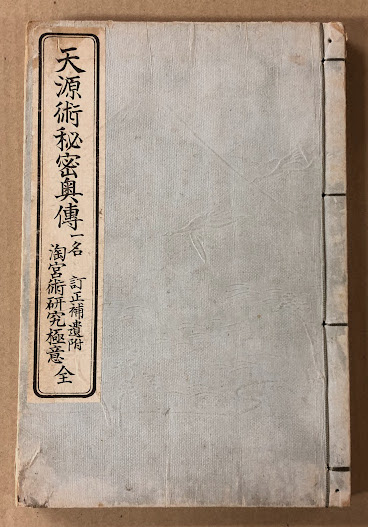 天源術秘密奧傳
一名 訂正補遺附
淘宮術研究極意 全